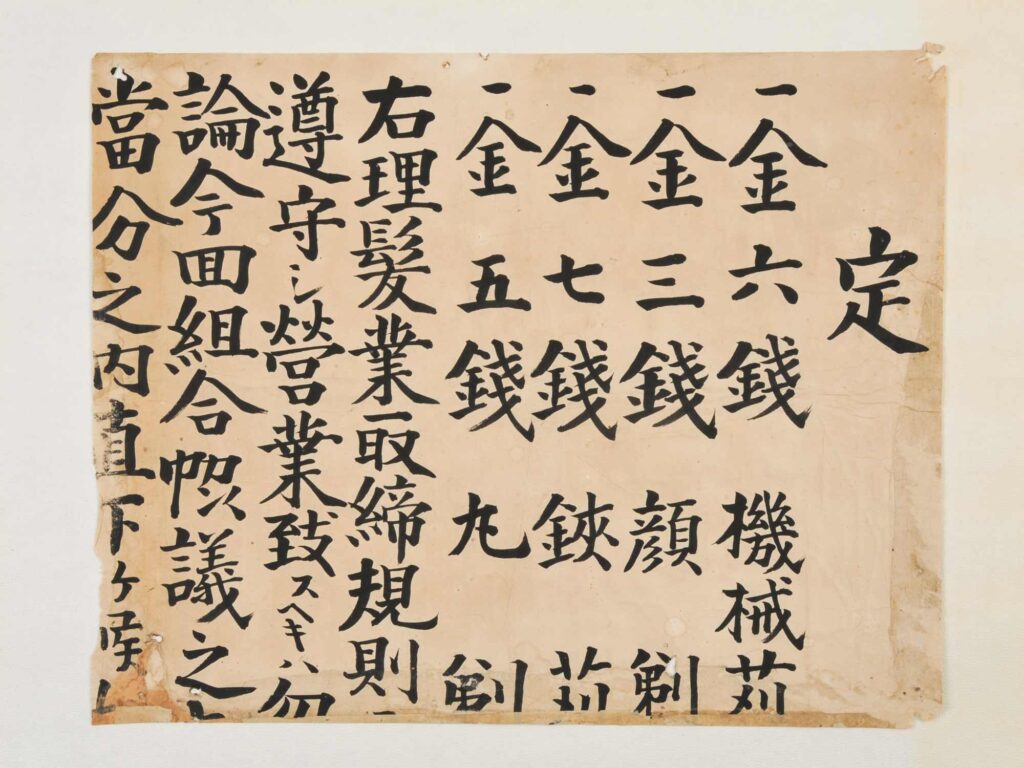 定
一金六錢 機械苅
一金三錢 顔剃
一金七錢 鋏苅
一金五錢 丸剃
右理髪業取締規則
遵守シ營業致スヘキハ勿
論今回組合恊議之
當分之内直下ケ候